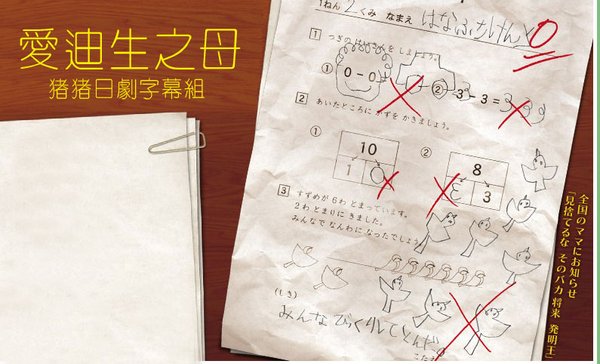 愛迪生之母
猪猪日劇字幕組
1ねん 2 くみ なまえ はなぶちけんと 0
1 つぎの けいさんを しましょう。
① 0-0 ② 3-3=
2 あいたところに かずを かきましょう。
① ②
10 8
1 0 3
3 すずめが 6わ とまっています。
2わ とまりに きました。
みんなで なんわに なったでしょう
(しき)
みんなびっくりしてとんだ。
全国のママにお知らせ
「見捨てるな そのバカ 将来 発明王」